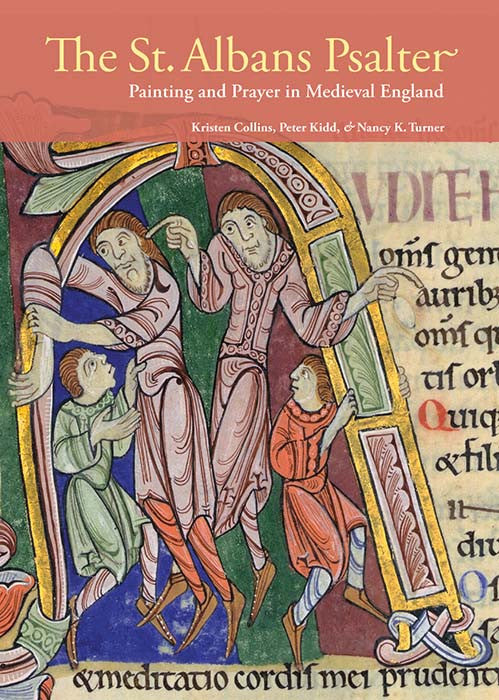 The St. Albans Psalter
Painting and Prayer in Medieval England
Kristen Collins, Peter Kidd, & Nancy K. Turner
om̄s gen
aurib
om̄s qu
tis orb
Quiq
&fili
diu
&meditatio cordis mei prudent